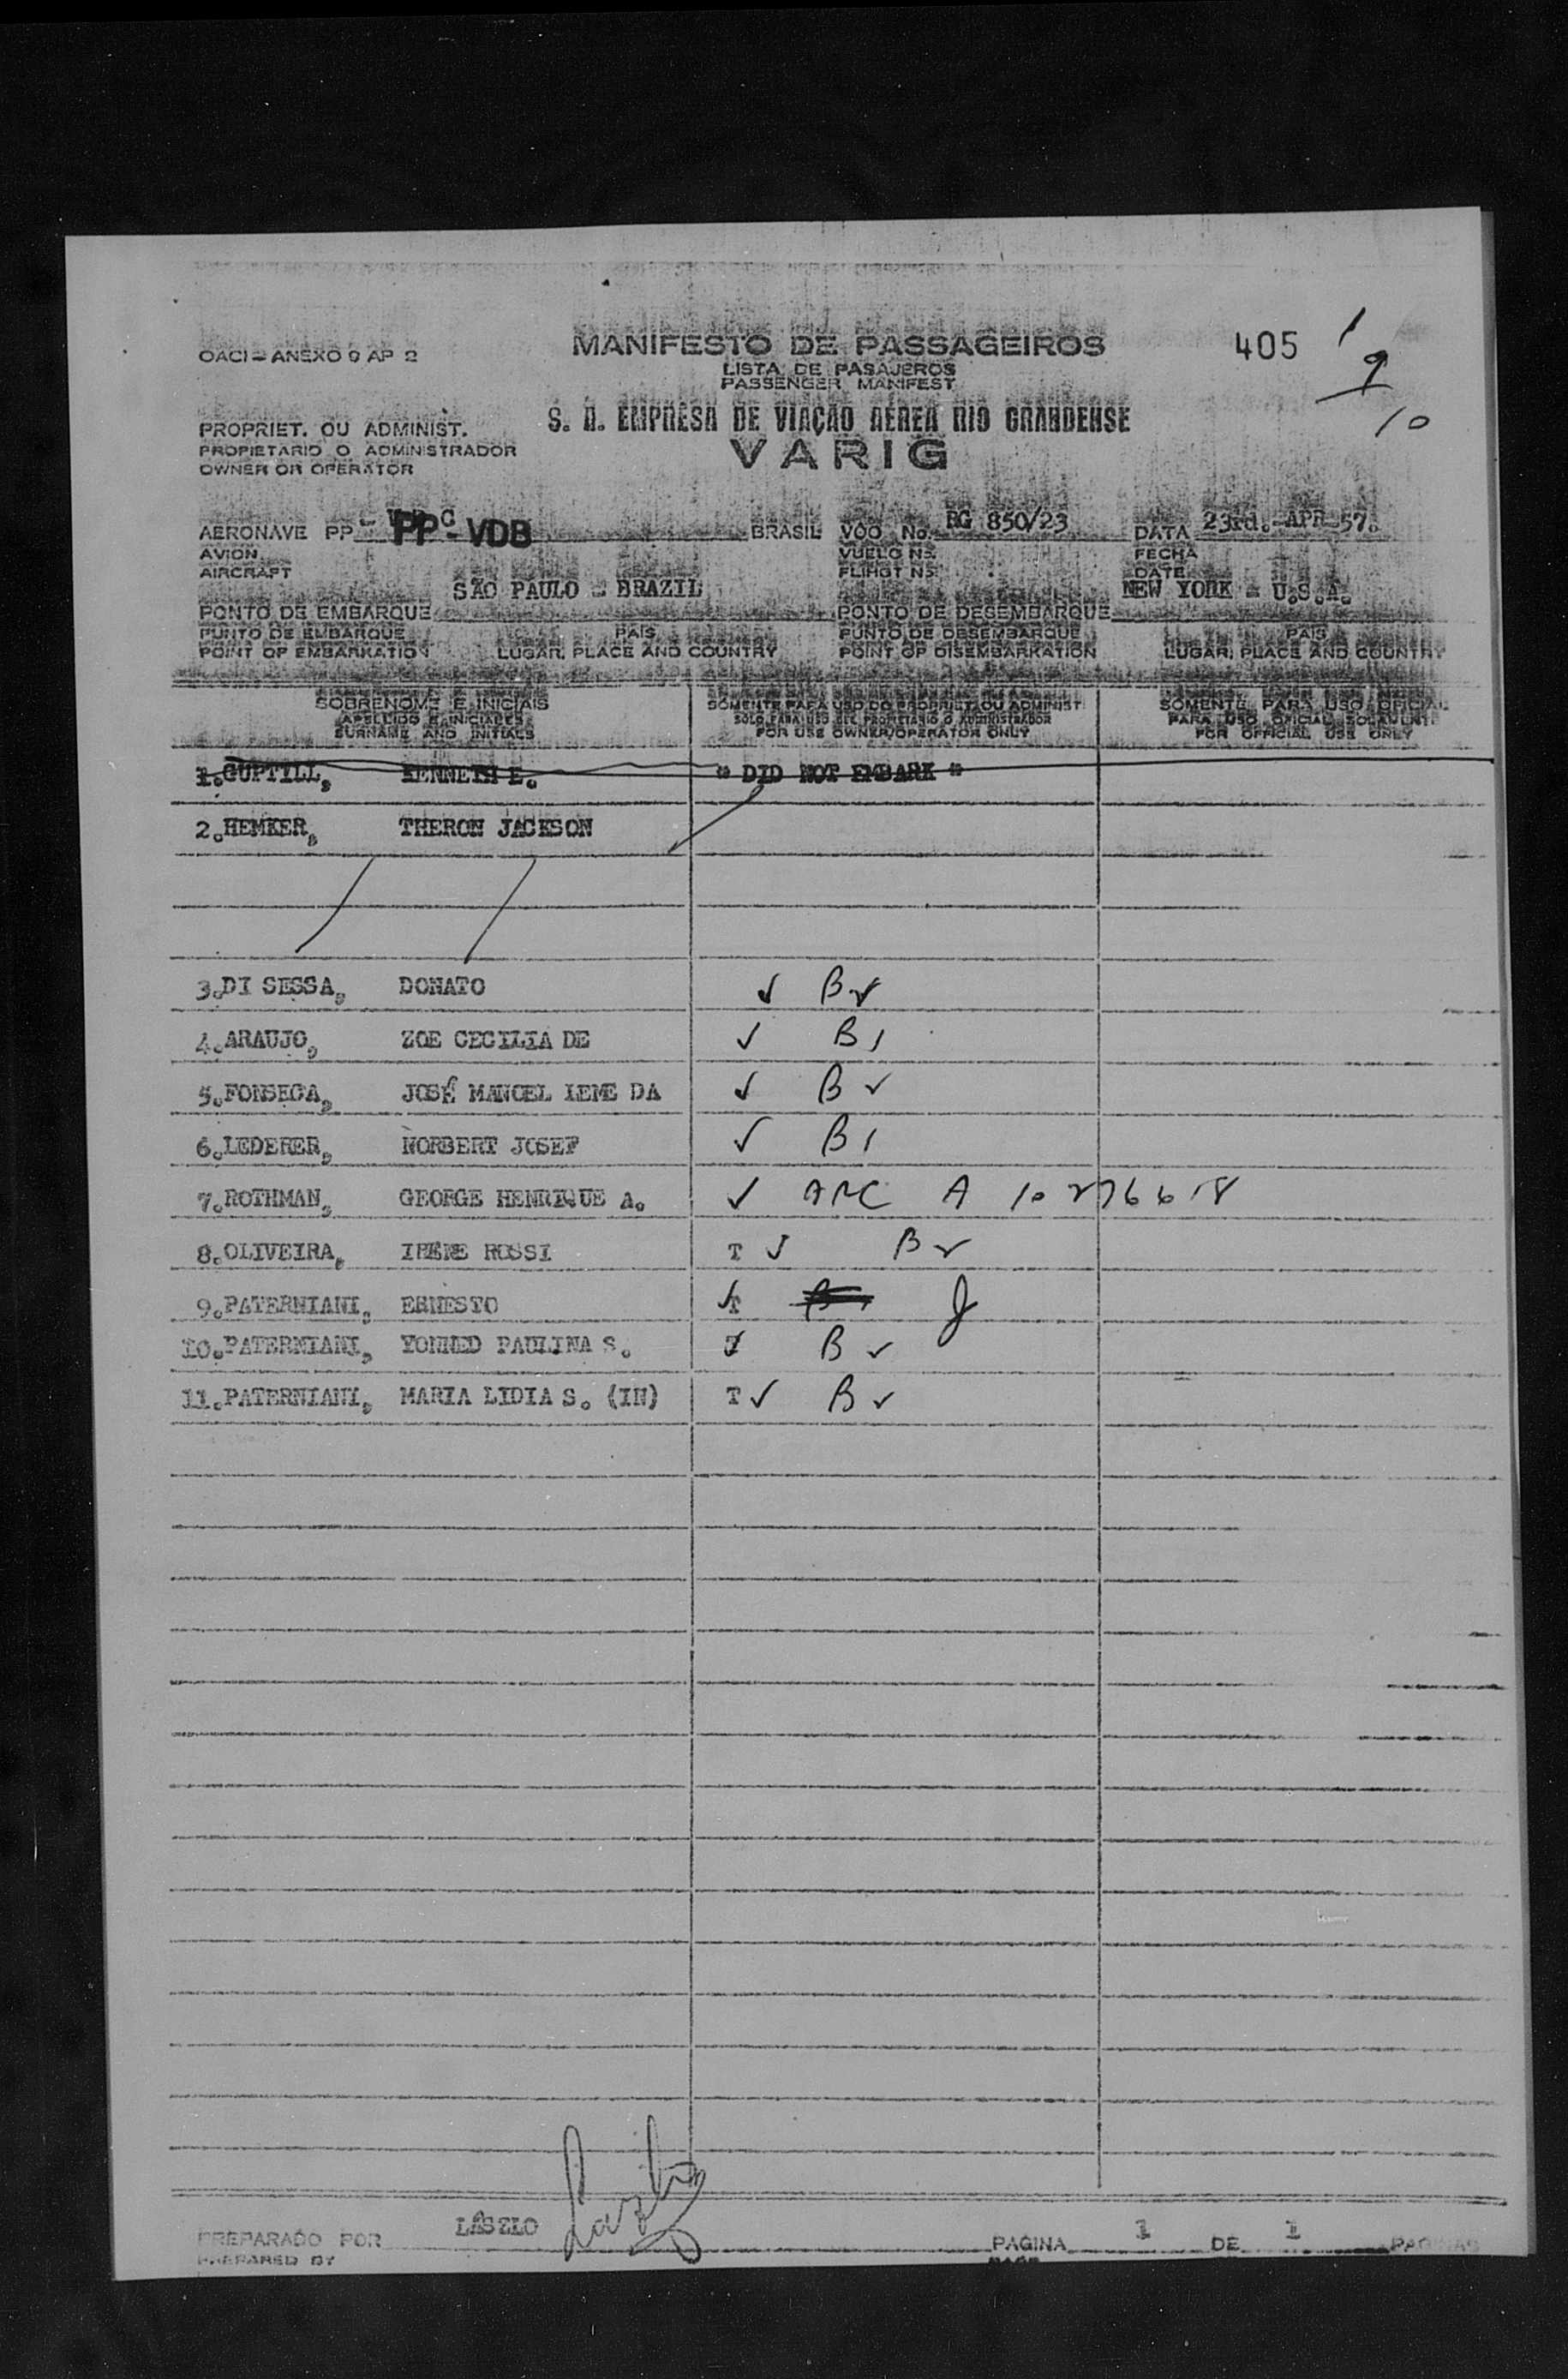 OACI - ANEXO 9 AP 2
MANIFESTO DE PASSAGEIROS
LISTA DE PASAJEROS
PASSENGER MANIFEST
405 1
9
10
PROPRIET. OU ADMINIST.
PROPIETARIO O ADMINISTRADOR
OWNER OR OPERATOR
S. A. EMPRESA DE VIAÇÃO AÉREA RIO GRANDENSE
VARIG
AERONAVE PP PP-VDB BRASIL VOO No. RG 850/23 DATA 23rd.-APR-57.
AVION VUELO Nº FECHA
AIRCRAFT FLIHGT Nº DATE
SÃO PAULO - BRAZIL NEW YORK - U.S.A.
PONTO DE EMBARQUE PONTO DE DESEMBARQUE
PUNTO DE EMBARQUE PAIS PUNTO DE DESEMBARQUE PAIS
POINT OF EMBARKATION LUGAR, PLACE AND COUNTRY POINT OF DISEMBARKATION LUGAR, PLACE AND COUNTRY
SOBRENOME E INICIAIS SOMENTE PARA USO DO PROPRIET. OU ADMINIST. SOMENTE PARA USO OFICIAL
APELLIDO E INICIALES SOLO PARA USO DEL PROPIETARIO O ADMINISTRADOR PARA USO OFICIAL SOLAMENTE
SURNAME AND INITIALS FOR USE OWNER/OPERATOR ONLY FOR OFFICIAL USE ONLY
1. GUPTILL, KENNETH E. " DID NOT EMBARK "
2. HEMKER, THERON JACKSON
3. DI SESSA, DONATO ✓ B ✓
4. ARAUJO, ZOE CECILIA DE ✓ B /
5. FONSECA, JOSÉ MANOEL LEME DA ✓ B ✓
6. LEDERER, NORBERT JOSEF ✓ B /
7. ROTHMAN, GEORGE HENRIQUE A. ✓ ARC A
8. OLIVEIRA, IRENE ROSSI T ✓ B ✓
9. PATERNIANI, ERNESTO T ✓
10. PATERNIANI, YONNED PAULINA S. B ✓
11. PATERNIANI, MARIA LIDIA S. (IN) T ✓ B ✓
PREPARADO POR LÁSZLO PAGINA 1 DE 1 PAGINAS
PREPARED BY